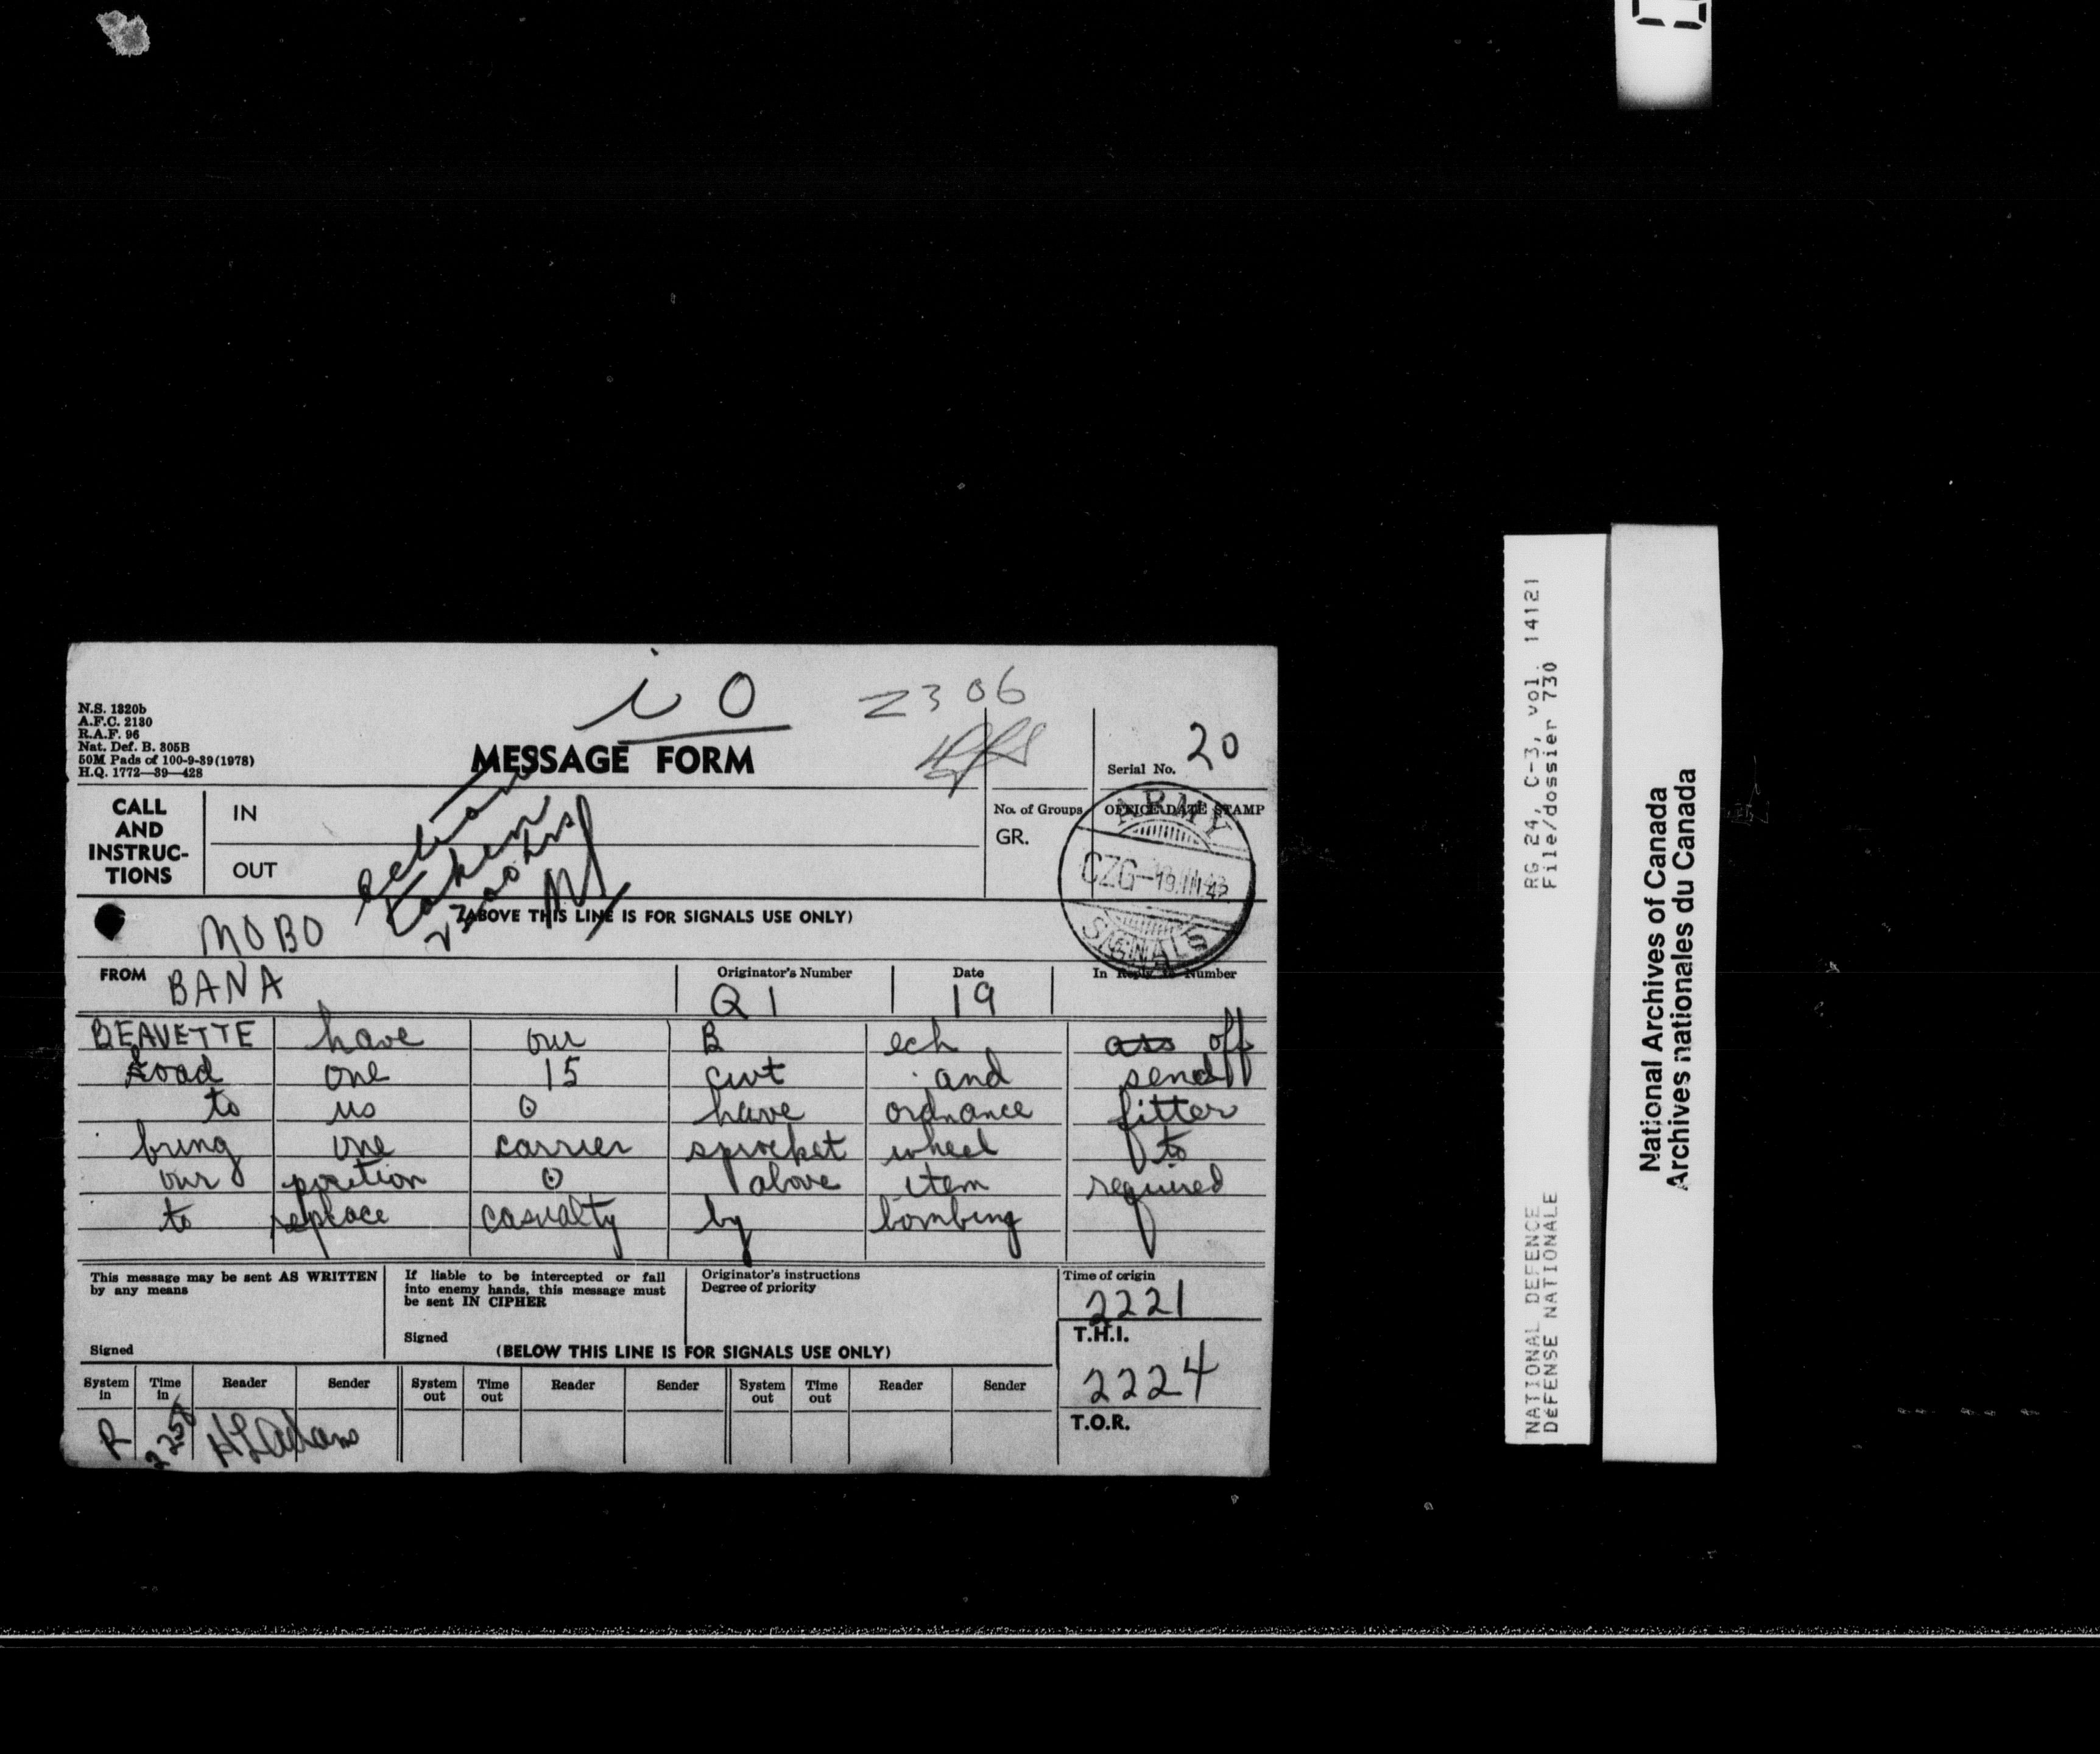 i O
2306
N.S. 1320b
A.F.C. 2130
R.A.F. 96
Nat. Def. B. 305B
50M Pads of 100-9-39(1978)
H.Q. 1772—39—428
MESSAGE FORM
Serial No. 20
CALL AND INSTRUC-TIONS
IN
OUT
No. of Groups
GR.
OFFICE DATE STAMP
ARMY
CZG-19.III.42
SIGNALS
action
taken
2300 hrs
(ABOVE THIS LINE IS FOR SIGNALS USE ONLY)
MOBO
FROM BANA
Originator's Number Q1
Date 19
In Reply to Number
BEAVETTE have our B ech off
load one 15 cwt and send
to us O have ordnance fitter
bring one carrier sprocket wheel to
our position O above item required
to replace casualty by bombing
This message may be sent AS WRITTEN
by any means
Signed
If liable to be intercepted or fall
into enemy hands, this message must
be sent IN CIPHER
Signed
Originator's instructions
Degree of priority
Time of origin
2221
T.H.I.
2224
T.O.R.
(BELOW THIS LINE IS FOR SIGNALS USE ONLY)
System in Time in Reader Sender System out Time out Reader Sender System out Time out Reader Sender
R HL Adams
RG 24, C-3, vol. 14121
File/dossier 730
NATIONAL DEFENCE
DEFENSE NATIONALE
National Archives of Canada
Archives nationales du Canada